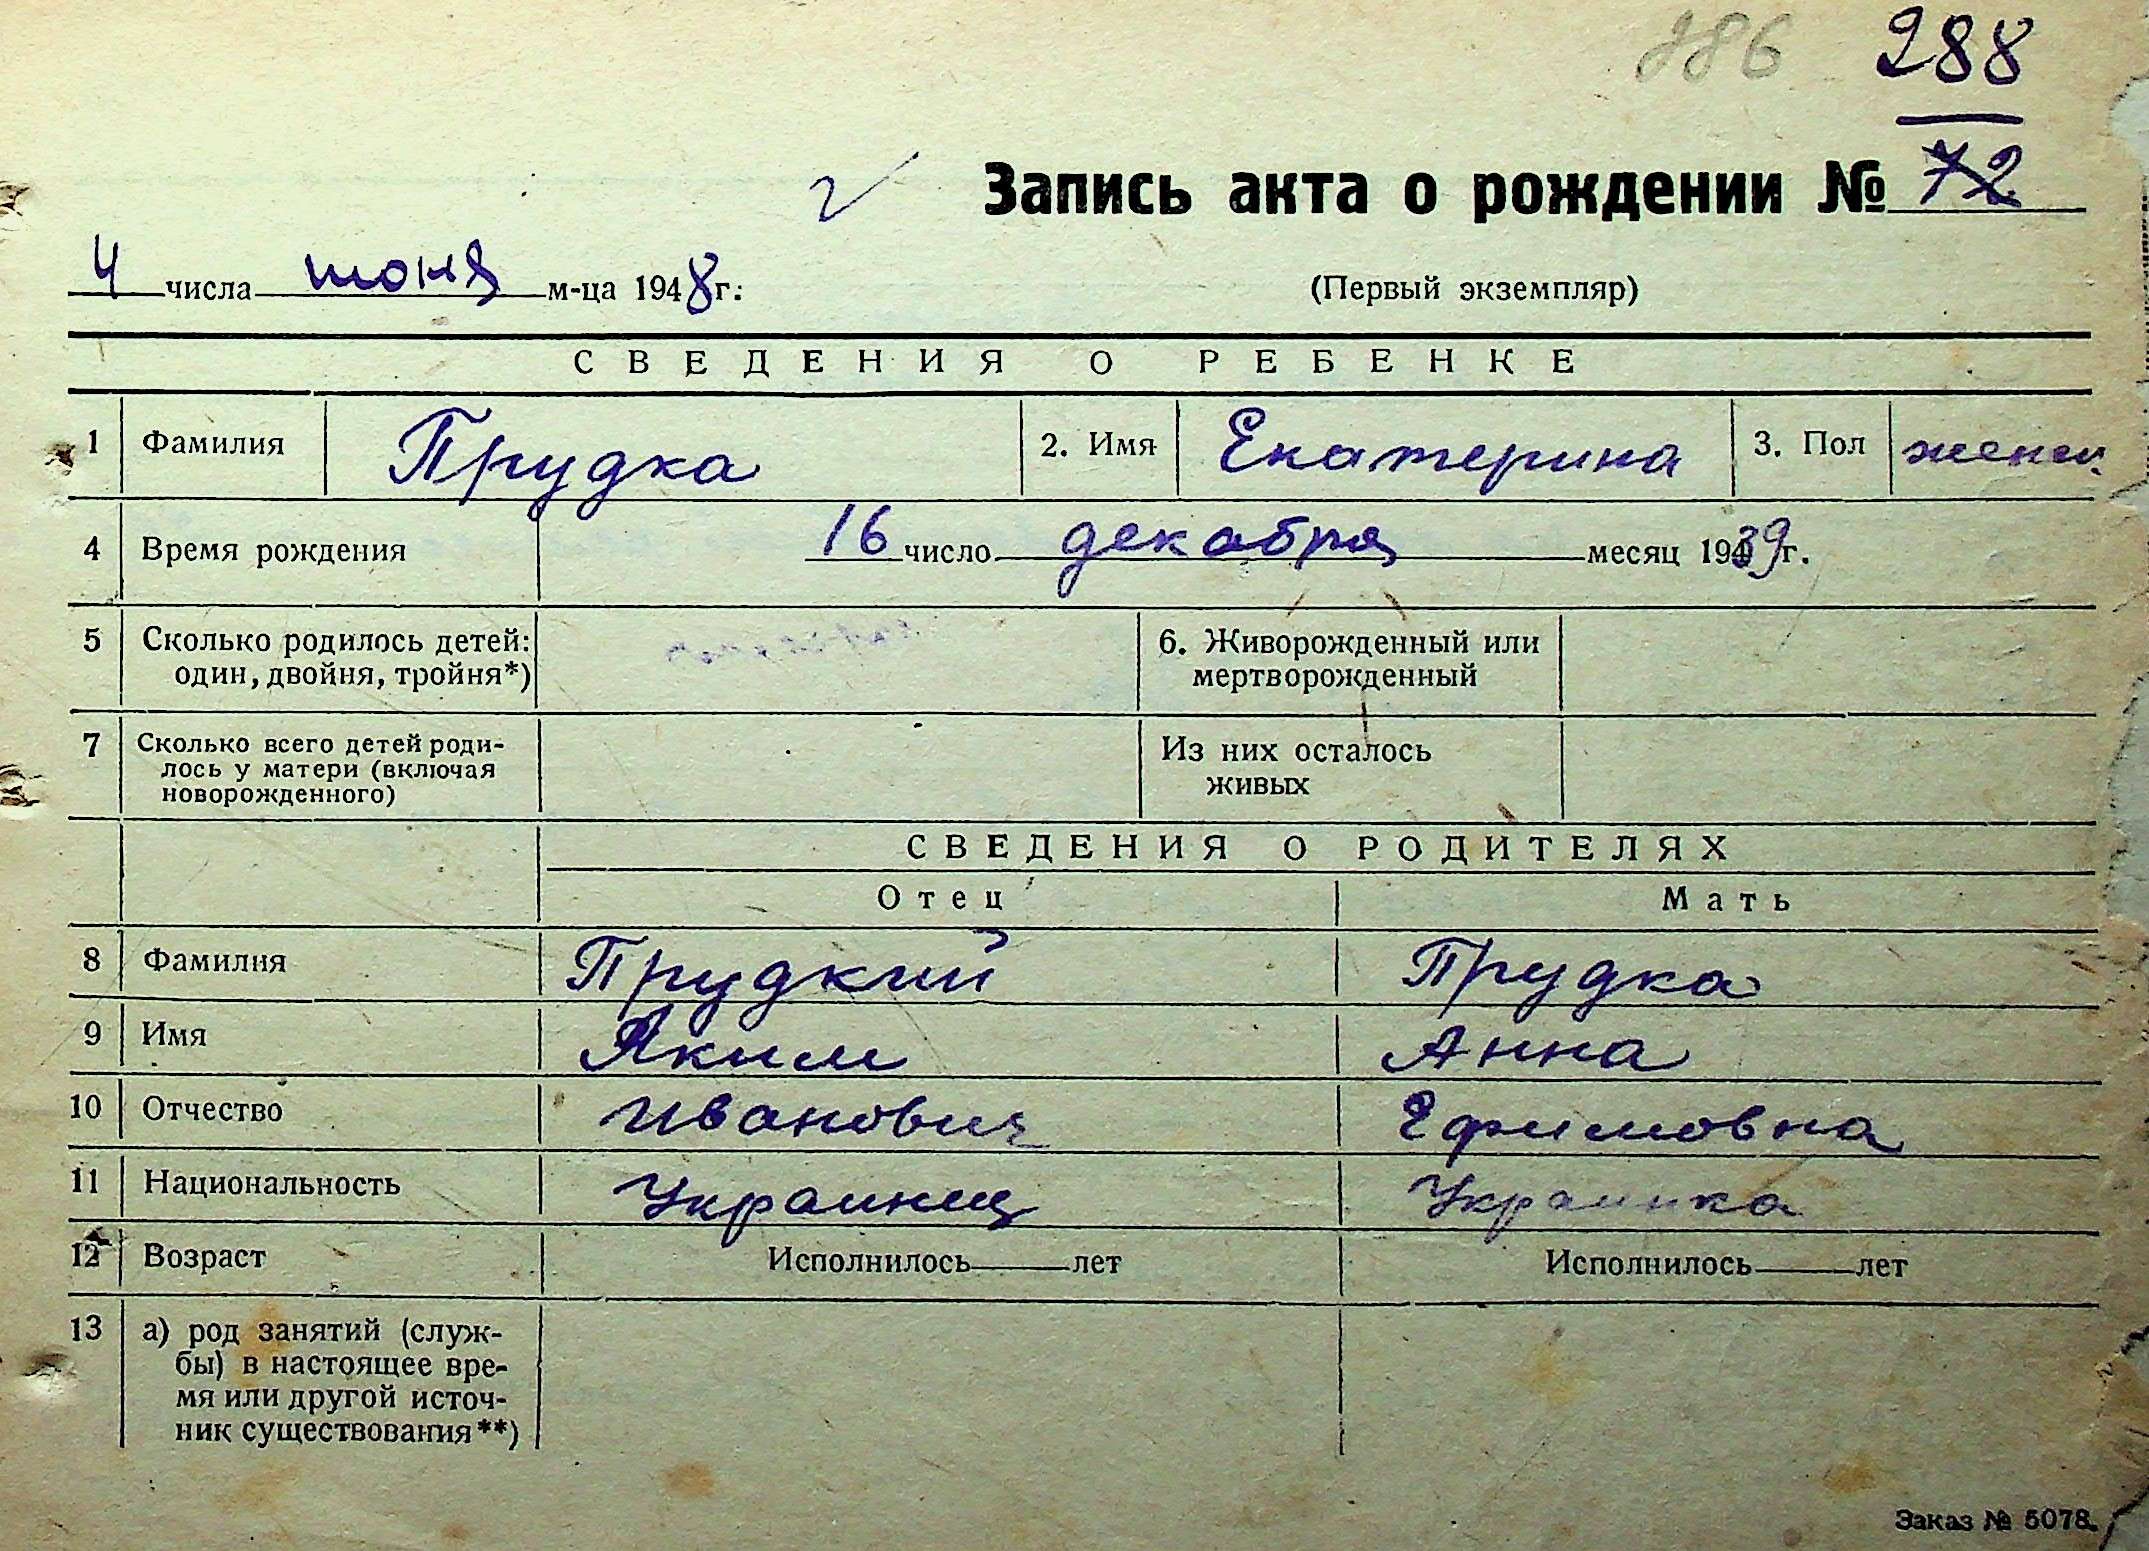 286 288
Запись акта о рождении № 72
4 числа июня м-ца 1948 г.
(Первый экземпляр)
СВЕДЕНИЯ О РЕБЕНКЕ
1 Фамилия Прудка 2. Имя Екатерина 3. Пол женск.
4 Время рождения 16 число декабря месяц 1939 г.
5 Сколько родилось детей: 6. Живорожденный или
один, двойня, тройня*) мертворожденный
7 Сколько всего детей роди- Из них осталось
лось у матери (включая живых
новорожденного)
СВЕДЕНИЯ О РОДИТЕЛЯХ
Отец Мать
8 Фамилия Прудкий Прудка
9 Имя Яким Анна
10 Отчество Иванович Ефимовна
11 Национальность Украинец Украинка
12 Возраст Исполнилось лет Исполнилось лет
13 а) род занятий (служ-
бы) в настоящее вре-
мя или другой источ-
ник существования**)
Заказ № 5078.